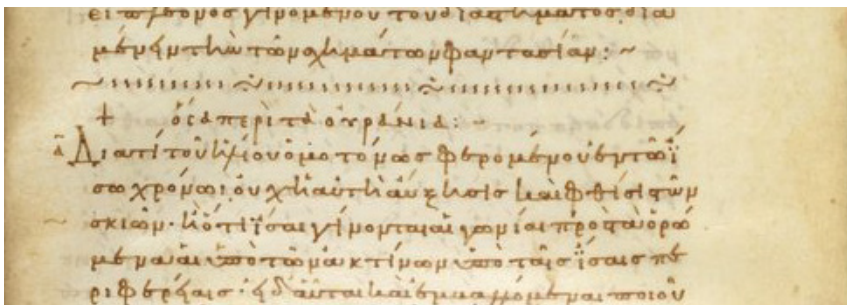 εἰ πλέονος γινομένου τοῦ διαστήματος. δια
μένειν τὴν τῶν σχημάτων φαντασίαν: ~
+ ὅσα περὶ τὰ οὐράνια: ~
α Διατί τοῦ ἡλίου ὁμοτόνως φερομένου ἐν τῶ ἴ
σω χρόνωι. οὐχ ἡ αὐτὴ αὔξησις καὶ φθίσις τῶν
σκιῶν. ἢ ὅτι ἴσαι γίνονται αἱ γωνίαι πρὸς τὰ ὁρώ
μενα αἱ ὑπὸ τῶν ἀκτίνων ὑπὸ ταῖς ἴσαις πε
ριφερείαις. εἰ δ' αὗται καὶ ἐκβαλλόμεναι ποιοῦ